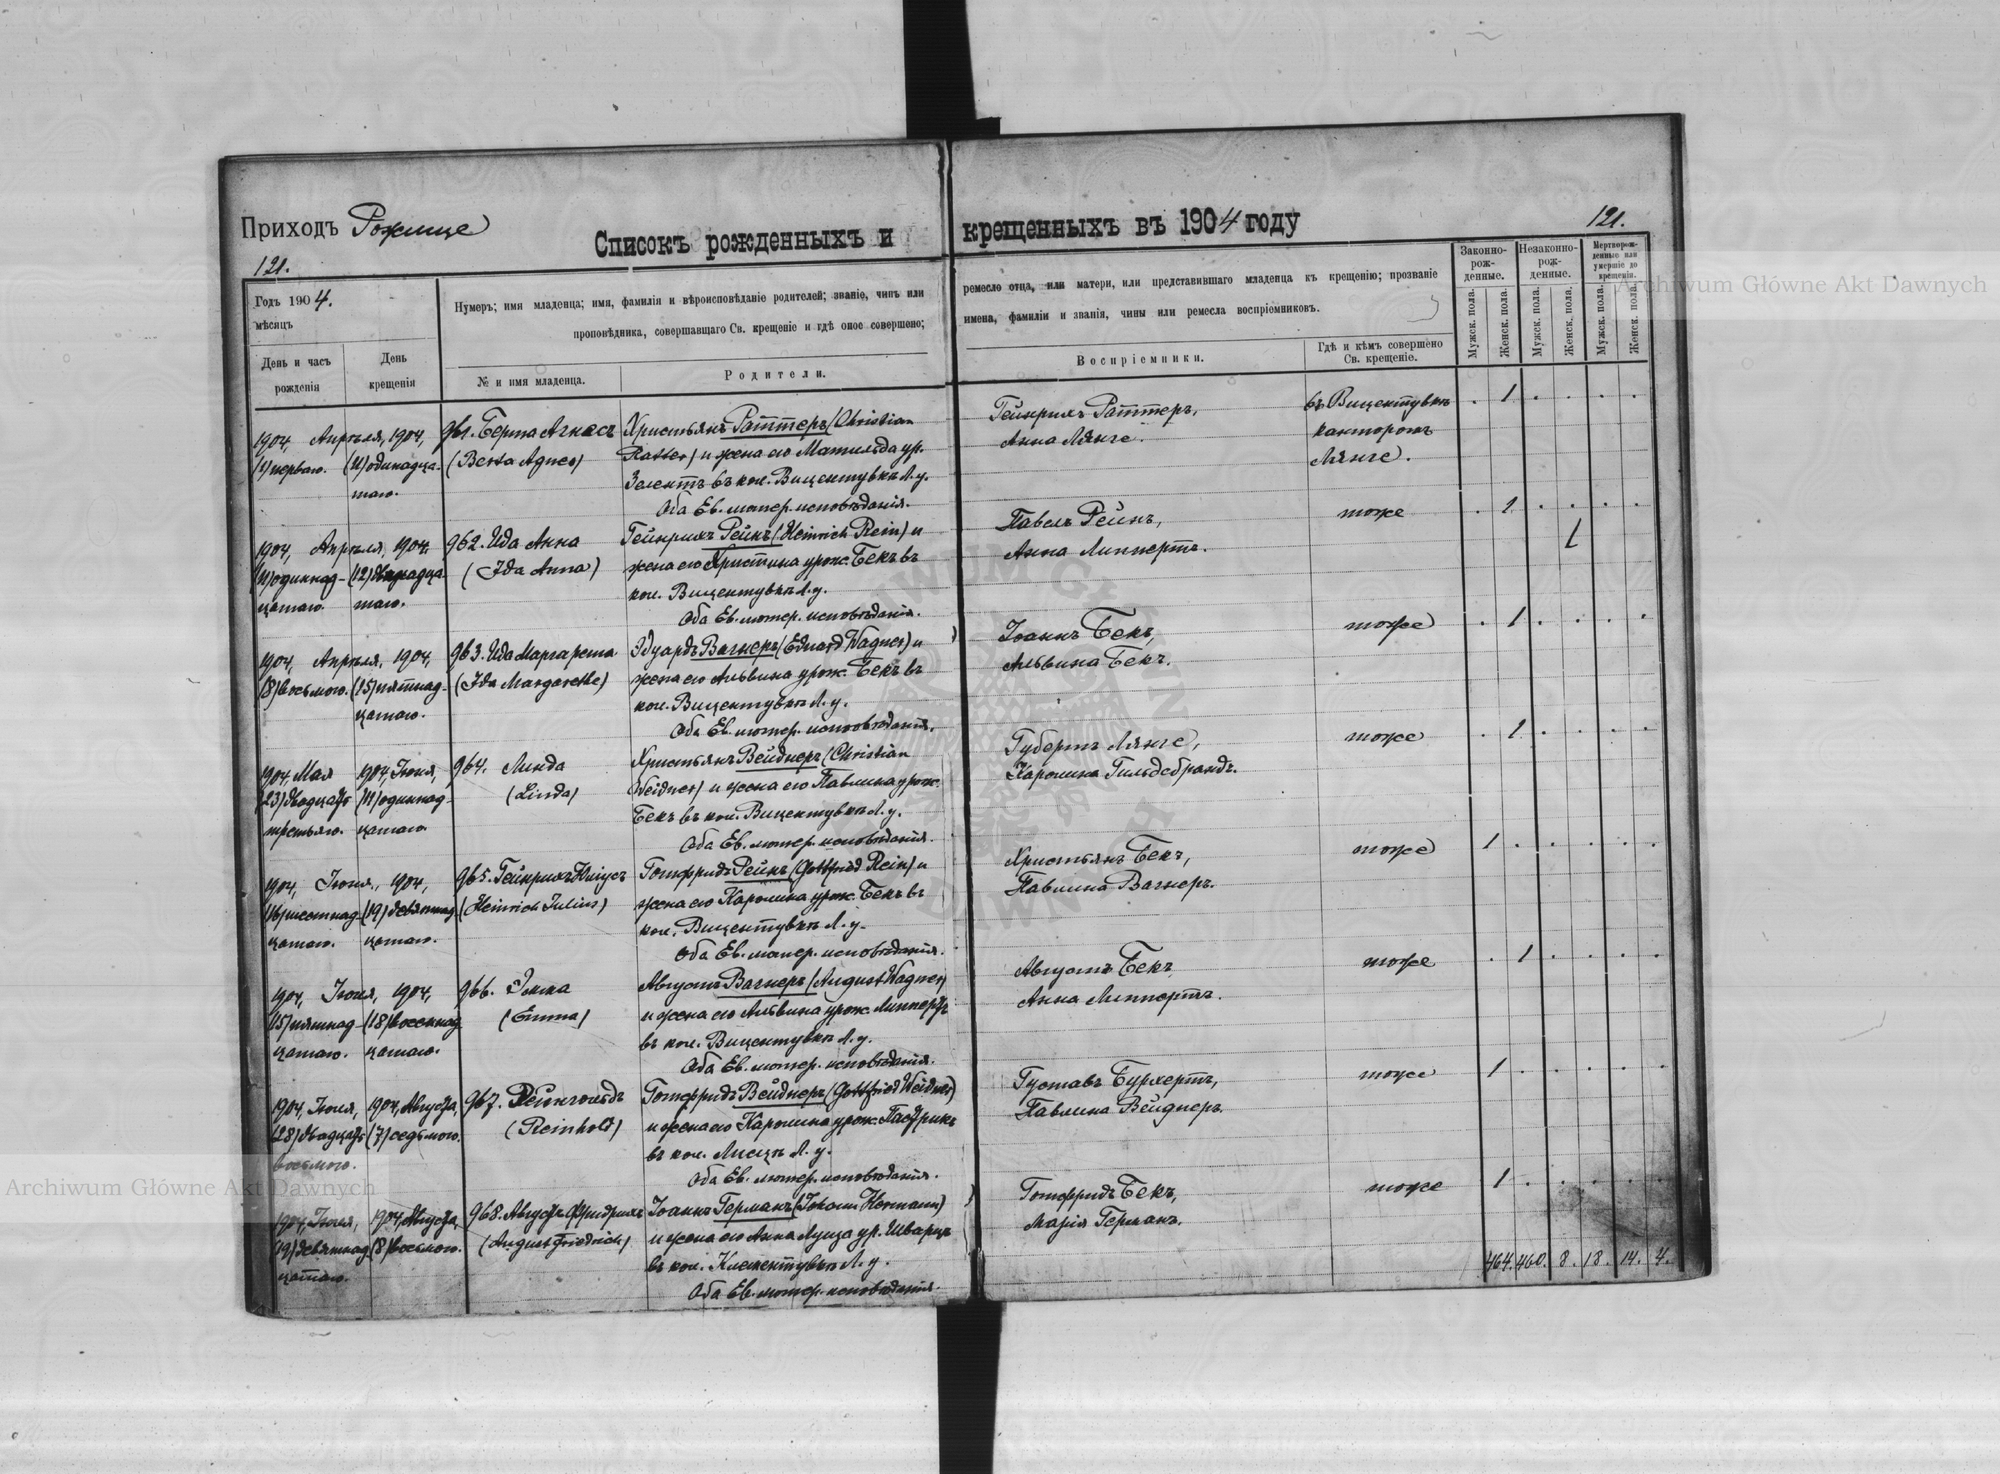 Приходъ Рожище
Списокъ рожденныхъ и
крещенныхъ въ 1904 году
121.
121.
Годъ 1904.
мѣсяцъ
День и часъ
рожденія
День
крещенія
Нумеръ; имя младенца; имя, фамилія и вѣроисповѣданіе родителей; званіе, чинъ или
проповѣдника, совершавщаго Св. крещеніе и гдѣ оное совершено;
№ и имя младенца.
Родители.
ремесло отца, или матери, или представившаго младенца къ крещенію; прозваніе
имена, фамиліи и званія, чины или ремесла воспріемниковъ.
Воспріемники.
Гдѣ и кѣмъ совершено
Св. крещеніе.
Законно-
рож-
денные.
Незаконно-
рож-
денные.
Мертворож-
денные или
умершіе до
крещенія.
Мужск. пола.
Женск. пола.
Мужск. пола.
Женск. пола.
Мужск. пола.
Женск. пола.
1904, Апрѣля, 1904,
(1) перваго. (11) одинадца-
таго.
961. Берта Агнесъ
(Berta Agnes)
Христьянъ Раттеръ (Christian
Ratter) и жена его Матильда ур.
Зелентъ въ кол. Вицентувкѣ Л. у.
Оба Ев. лютер. исповѣданія.
Гейнрихъ Раттеръ,
Анна Лянге.
въ Вицентувкѣ
канторомъ
Лянге.
. 1 . . . .
1904, Апрѣля, 1904,
(11) одиннад- (12) двѣнадца-
цатаго. таго.
962. Ида Анна
(Ida Anna)
Гейнрихъ Рейнъ (Heinrich Rein) и
жена его Христина урож. Бекъ въ
кол. Вицентувкѣ Л. у.
Оба Ев. лютер. исповѣданія.
Павелъ Рейнъ,
Анна Липпертъ.
тоже
. 1 . . . .
1904, Апрѣля, 1904,
(8) восьмого. (15) пятнад-
цатаго.
963. Ида Маргарета
(Ida Margarethe)
Эдуардъ Вагнеръ (Eduard Wagner) и
жена его Альвина урож. Бекъ въ
кол. Вицентувкѣ Л. у.
Оба Ев. лютер. исповѣданія.
Іоаннъ Бекъ,
Альвина Бекъ.
тоже
. 1 . . . .
1904, Мая 1904 Іюня,
(23) двадцать (11) одиннад-
третьяго. цатаго.
964. Линда
(Linda)
Христьянъ Вейднеръ (Christian
Weidner) и жена его Павлина урож.
Бекъ въ кол. Вицентувкѣ Л. у.
Оба Ев. лютер. исповѣданія.
Губертъ Лянге,
Каролина Гильдебрандъ.
тоже
. 1 . . . .
1904, Іюня, 1904,
(16) шестнад- (19) девятнад-
цатаго. цатаго.
965. Гейнрихъ Юліусъ
(Heinrich Julius)
Готфридъ Рейнъ (Gottfried Rein) и
жена его Каролина урож. Бекъ въ
кол. Вицентувкѣ Л. у.
Оба Ев. лютер. исповѣданія.
Христьянъ Бекъ,
Павлина Вагнеръ.
тоже
1 . . . . .
1904, Іюня, 1904,
(15) пятнад- (18) восемнад-
цатаго. цатаго.
966. Эмма
(Emma)
Августъ Вагнеръ (August Wagner)
и жена его Альвина урож. Липпертъ
въ кол. Вицентувкѣ Л. у.
Оба Ев. лютер. исповѣданія.
Августъ Бекъ,
Анна Липпертъ.
тоже
. 1 . . . .
1904, Іюня, 1904, Августа,
(28) двадцать (7) седьмого.
восьмого.
967. Рейнгольдъ
(Reinhold)
Готфридъ Вейднеръ (Gottfried Weidner)
и жена его Каролина урож.
въ кол. Л. у.
Оба Ев. лютер. исповѣданія.
Густавъ Бурхертъ,
Павлина Вейднеръ.
тоже
1 . . . . .
1904, Іюля, 1904, Августа,
(19) девятнад- (8) восьмого.
цатаго.
968. Августъ Фридрихъ
(August Friedrich)
Іоаннъ Германъ (Johann Hermann)
и жена его Анна Луиза ур. Шварцъ
въ кол. Климентувкѣ Л. у.
Оба Ев. лютер. исповѣданія.
Готфридъ Бекъ,
Марія Германъ.
тоже
1 . . . . .
464. 460. 8. 18. 14. 4.
Archiwum Główne Akt Dawnych
Archiwum Główne Akt Dawnych